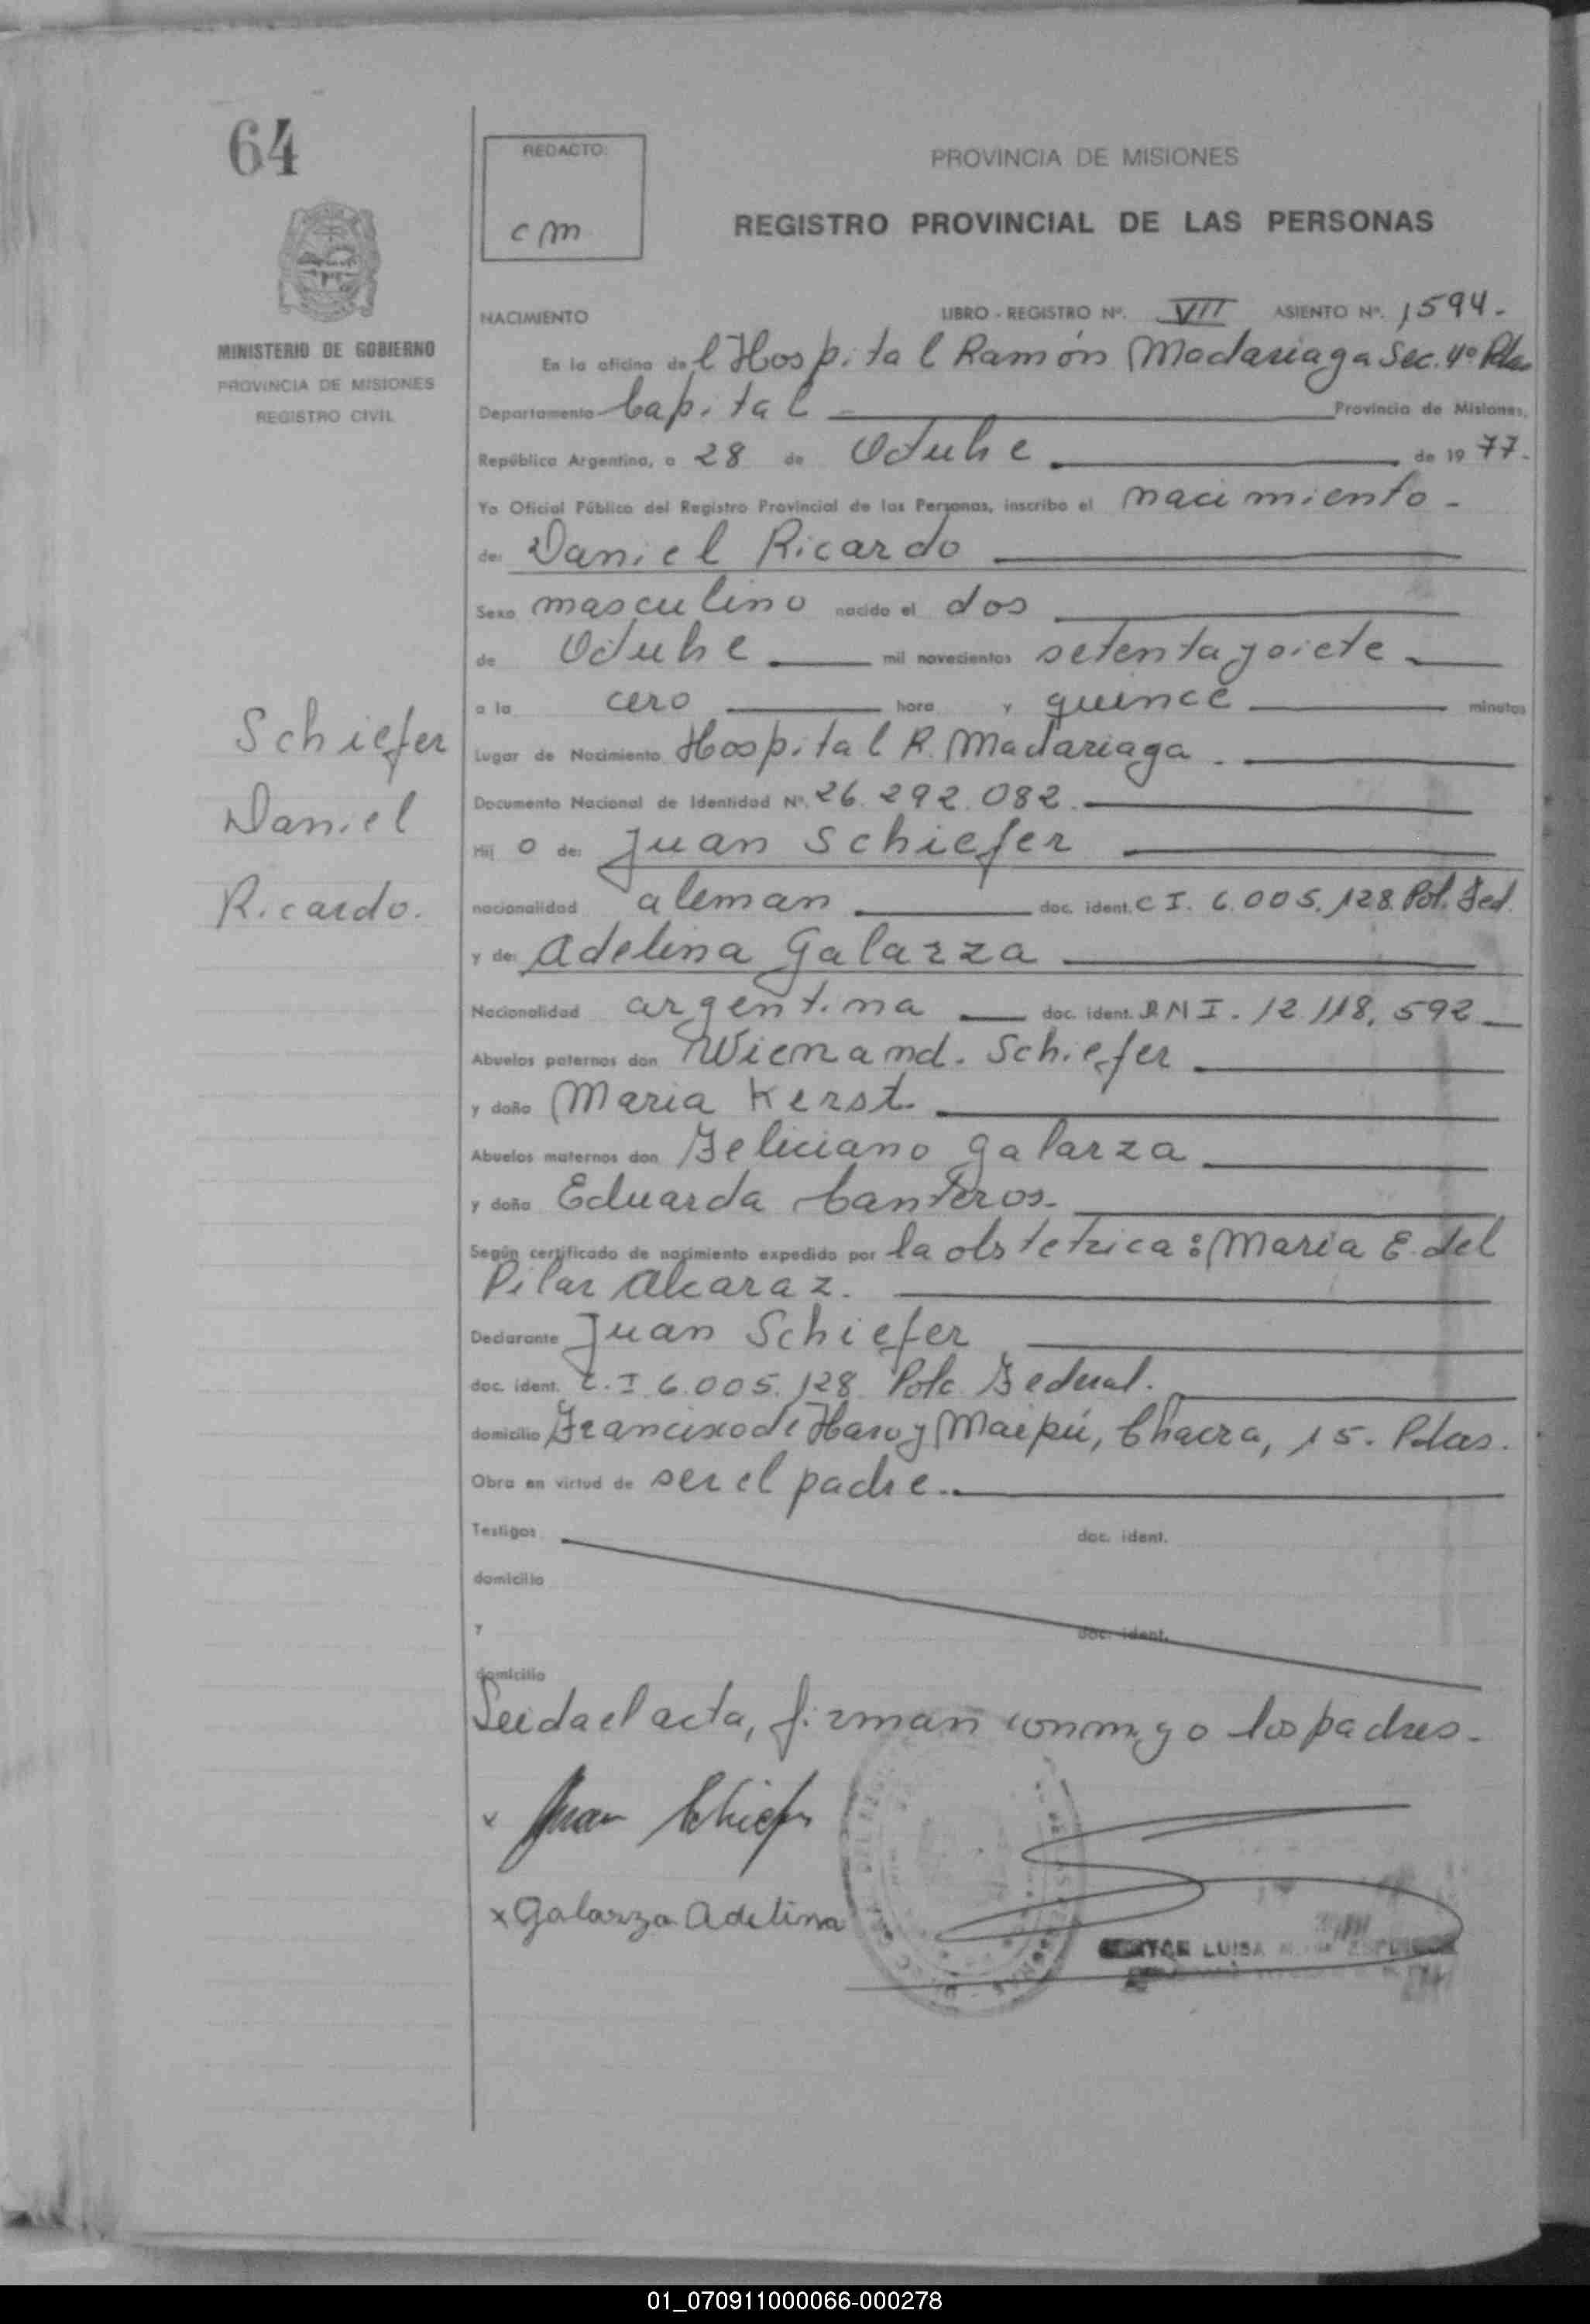 64
MINISTERIO DE GOBIERNO
PROVINCIA DE MISIONES
REGISTRO CIVIL
Schiefer
Daniel
Ricardo.
REDACTO:
cm
PROVINCIA DE MISIONES
REGISTRO PROVINCIAL DE LAS PERSONAS
NACIMIENTO LIBRO - REGISTRO Nº. VII ASIENTO Nº. 1594.
En la oficina del Hospital Ramón Madariaga Sec. 4º Pdas
Departamento Capital Provincia de Misiones,
República Argentina, a 28 de Octubre de 1977.
Yo Oficial Público del Registro Provincial de las Personas, inscribo el nacimiento
de: Daniel Ricardo
Sexo masculino nacido el dos
de Octubre mil novecientos setenta y siete
a la cero hora y quince minutos
Lugar de Nacimiento Hospital R. Madariaga.
Documento Nacional de Identidad Nº. 26.292.082.
Hij o de: Juan Schiefer
nacionalidad aleman doc. ident. C I. 6.005.128. Pol. Fed.
y de: Adelina Galarza
Nacionalidad argentina doc. ident. DNI. 12.118.592
Abuelos paternos don Wienand. Schiefer
y doña Maria Kerst.
Abuelos maternos don Feliciano Galarza
y doña Eduarda Canteros.
Según certificado de nacimiento expedido por la obstetrica: Maria E. del
Pilar Alcaraz.
Declarante Juan Schiefer
doc. ident. C.I. 6.005.128 Polc. Federal.
domicilio Francisco de Haro y Maipú, Chacra, 15. Pdas.
Obra en virtud de ser el padre.
Testigos doc. ident.
domicilio
y doc. ident.
domicilio
Leida el acta, firman conmigo los padres.
x Juan Schiefer
x Galarza Adelina
LUISA
01_070911000066-000278